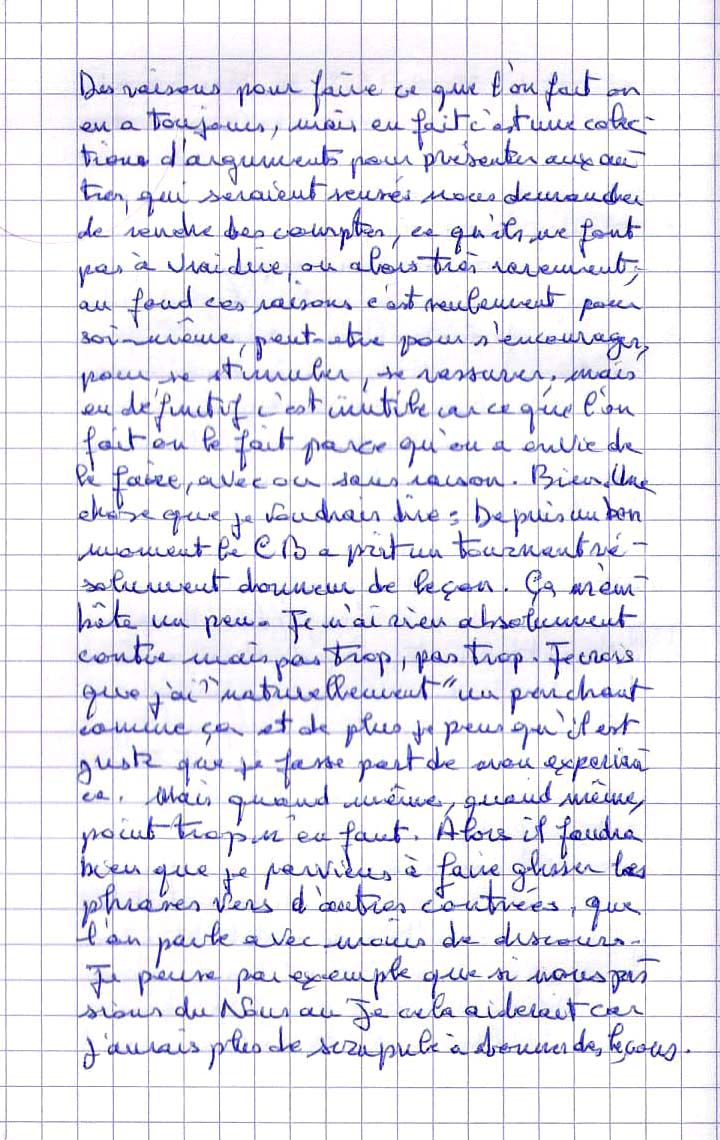 Des raisons pour faire ce que l'on fait on
en a toujours, mais en fait c'est une colec-
tions d'arguments pour présenter aux au-
tres, qui seraient sensés nous demander
de rendre des comptes, ce qu'ils ne font
pas à vrai dire, ou alors très rarement,
au fond ces raisons c'est seulement pour
soi-même, peut-etre pour s'encourager,
pour se stimuler, se rassurer, mais
en définitif c'est inutile car ce que l'on
fait on le fait parce qu'on a envie de
le faire, avec ou sans raison. Bien. Une
chose que je voudrais dire: Depuis un bon
moment le CB a prit un tournant ré-
solument donneur de leçon. Ça m'em-
bête un peu. Je n'ai rien absolument
contre mais pas trop, pas trop. Je crois
que j'ai "naturellement" un penchant
comme ça et de plus je pens qu'il est
juste que je fasse part de mon experian
ce. Mais quand même, quand même,
point trop n'en faut. Alors il faudra
bien que je parviens à faire glisser les
phrases vers d'autres contrées, que
l'on parle avec moins de discours.
Je pense par exemple que si nous pas
sions du Nous au Je cela aiderait car
j'aurais plus de scrupule à donner des leçons.